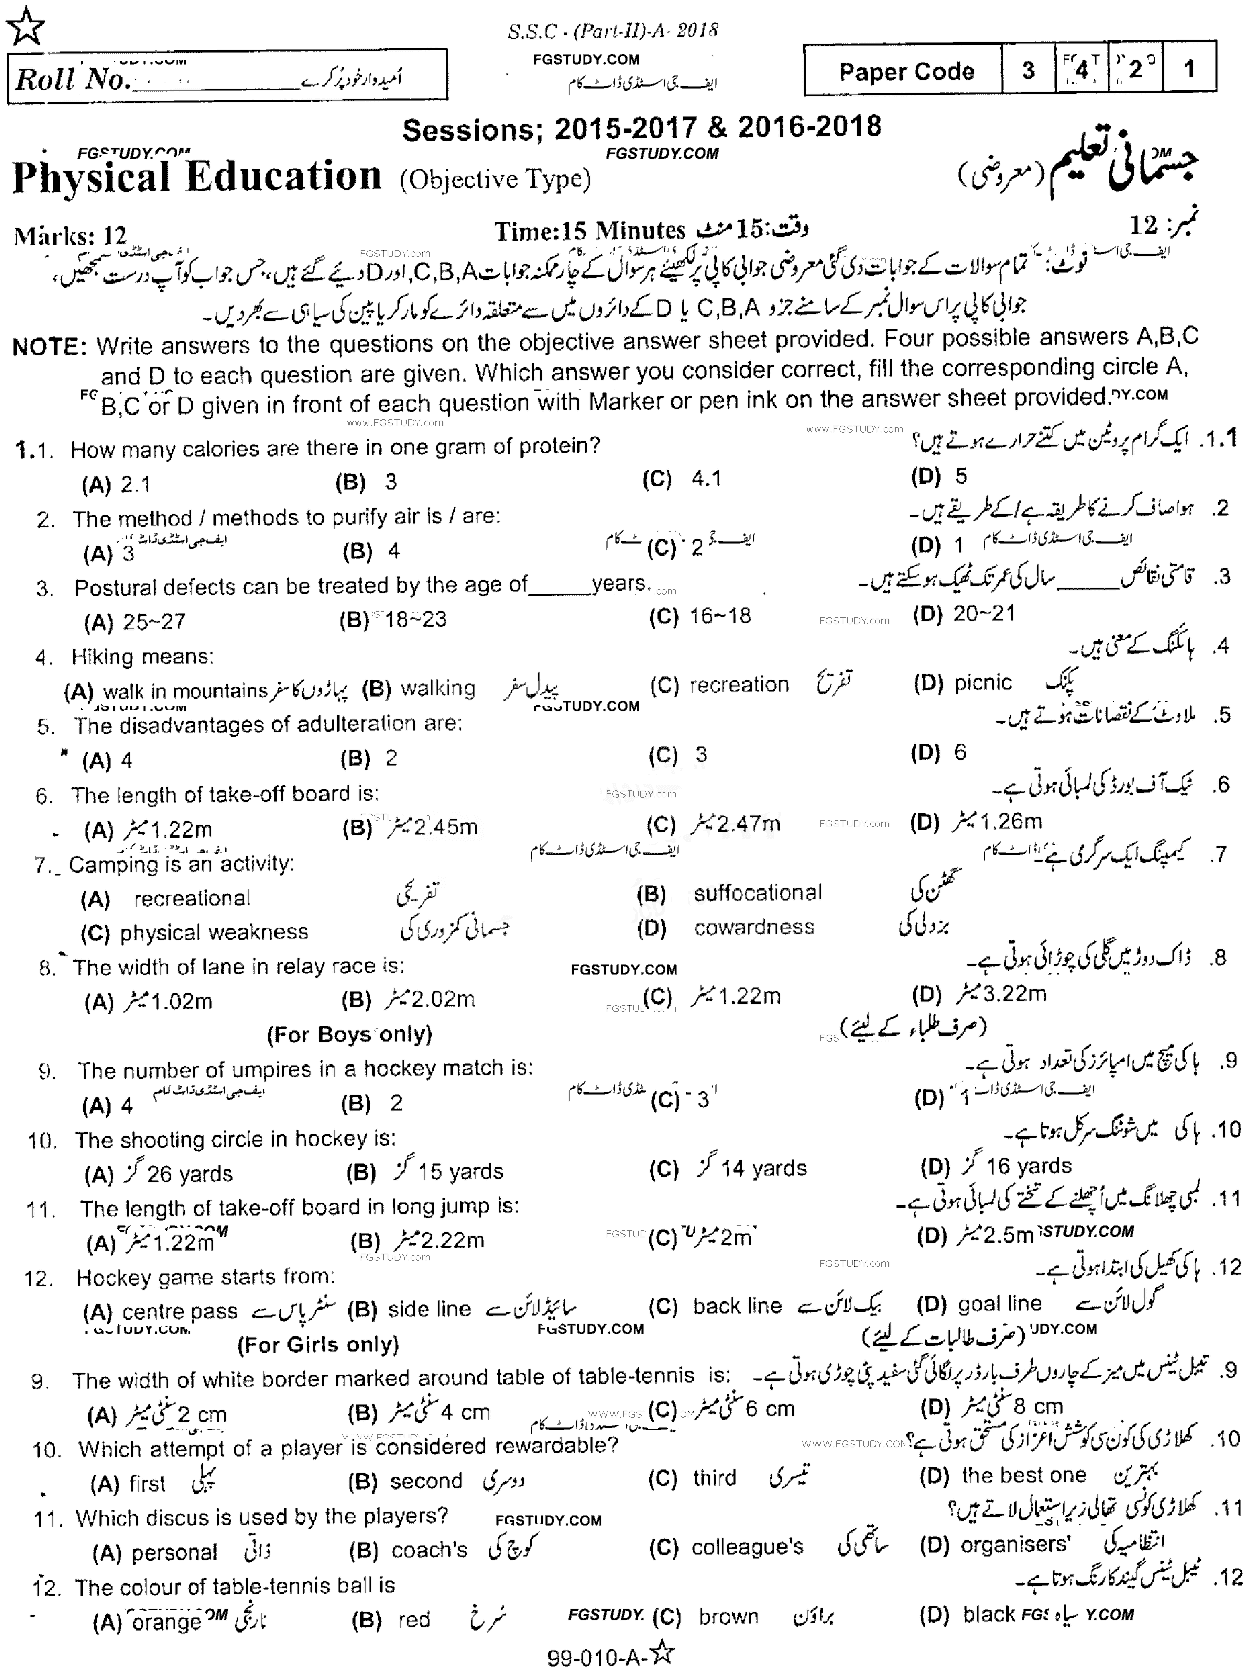 S.S.C - (Part-II)-A- 2018
FGSTUDY.COM
Roll No. امیدوار خود پُر کرے
ایف جی اسٹڈی ڈاٹ کام
Paper Code 3 4 2 1
Sessions; 2015-2017 & 2016-2018
FGSTUDY.COM FGSTUDY.COM
Physical Education (Objective Type) جسمانی تعلیم (معروضی)
Marks: 12 Time:15 Minutes وقت:15 منٹ نمبر: 12
نوٹ: تمام سوالات کے جوابات دی گئی معروضی جوابی کاپی پر لکھیئے ہر سوال کے چار ممکنہ جوابات C,B,A اور D دیئے گئے ہیں، جس جواب کو آپ درست سمجھیں،
جوابی کاپی پر اس سوال نمبر کے سامنے جزو C,B,A یا D کے دائروں میں سے متعلقہ دائرے کو مارکر یا پین کی سیاہی سے بھر دیں۔
NOTE: Write answers to the questions on the objective answer sheet provided. Four possible answers A,B,C
and D to each question are given. Which answer you consider correct, fill the corresponding circle A,
B,C or D given in front of each question with Marker or pen ink on the answer sheet provided.
www.FGSTUDY.com www.FGSTUDY.com
1.1. How many calories are there in one gram of protein? 1.1. ایک گرام پروٹین میں کتنے حرارے ہوتے ہیں؟
(A) 2.1 (B) 3 (C) 4.1 (D) 5
2. The method / methods to purify air is / are: 2. ہوا صاف کرنے کا طریقہ ہے / کے طریقے ہیں۔
(A) 3 (B) 4 (C) 2 (D) 1
3. Postural defects can be treated by the age of_____years. 3. قامتی نقائص _____ سال کی عمر تک ٹھیک ہو سکتے ہیں۔
(A) 25~27 (B) 18~23 (C) 16~18 (D) 20~21
4. Hiking means: 4. ہائکنگ کے معنی ہیں۔
(A) walk in mountains پہاڑوں کا سفر (B) walking پیدل سفر (C) recreation تفریح (D) picnic پکنک
FGSTUDY.COM
5. The disadvantages of adulteration are: 5. ملاوٹ کے نقصانات ہوتے ہیں۔
(A) 4 (B) 2 (C) 3 (D) 6
6. The length of take-off board is: 6. ٹیک آف بورڈ کی لمبائی ہوتی ہے۔
(A) میٹر 1.22m (B) میٹر 2.45m (C) میٹر 2.47m (D) میٹر 1.26m
ایف جی اسٹڈی ڈاٹ کام
7. Camping is an activity: 7. کیمپنگ ایک سرگرمی ہے۔
(A) recreational تفریحی (B) suffocational گھٹن کی
(C) physical weakness جسمانی کمزوری کی (D) cowardness بزدلی کی
8. The width of lane in relay race is: FGSTUDY.COM 8. ڈاک دوڑ میں گلی کی چوڑائی ہوتی ہے۔
(A) میٹر 1.02m (B) میٹر 2.02m (C) میٹر 1.22m (D) میٹر 3.22m
(For Boys only) (صرف طلباء کے لیئے)
9. The number of umpires in a hockey match is: 9. ہاکی میچ میں امپائرز کی تعداد ہوتی ہے۔
(A) 4 (B) 2 (C) 3 (D) 1
10. The shooting circle in hockey is: 10. ہاکی میں شوٹنگ سرکل ہوتا ہے۔
(A) گز 26 yards (B) گز 15 yards (C) گز 14 yards (D) گز 16 yards
11. The length of take-off board in long jump is: 11. لمبی چھلانگ میں اُچھلنے کے تختے کی لمبائی ہوتی ہے۔
(A) میٹر 1.22m (B) میٹر 2.22m (C) میٹر 2m (D) میٹر 2.5m
12. Hockey game starts from: 12. ہاکی کھیل کی ابتدا ہوتی ہے۔
(A) centre pass سنٹر پاس سے (B) side line سائیڈ لائن سے (C) back line بیک لائن سے (D) goal line گول لائن سے
FGSTUDY.COM
(For Girls only) (صرف طالبات کے لیئے)
9. The width of white border marked around table of table-tennis is: 9. ٹیبل ٹینس میں میز کے چاروں طرف بارڈر پر لگائی گئی سفید پٹی چوڑی ہوتی ہے۔
(A) سنٹی میٹر 2 cm (B) سنٹی میٹر 4 cm (C) سنٹی میٹر 6 cm (D) سنٹی میٹر 8 cm
10. Which attempt of a player is considered rewardable? 10. کھلاڑی کی کون سی کوشش اعزاز کی مستحق ہوتی ہے؟
(A) first پہلی (B) second دوسری (C) third تیسری (D) the best one بہترین
11. Which discus is used by the players? FGSTUDY.COM 11. کھلاڑی کونسی تھالی زیر استعمال لاتے ہیں؟
(A) personal ذاتی (B) coach's کوچ کی (C) colleague's ساتھی کی (D) organisers' انتظامیہ کی
12. The colour of table-tennis ball is 12. ٹیبل ٹینس گیند کا رنگ ہوتا ہے۔
(A) orange نارنجی (B) red سُرخ (C) brown براؤن (D) black سیاہ
99-010-A-☆